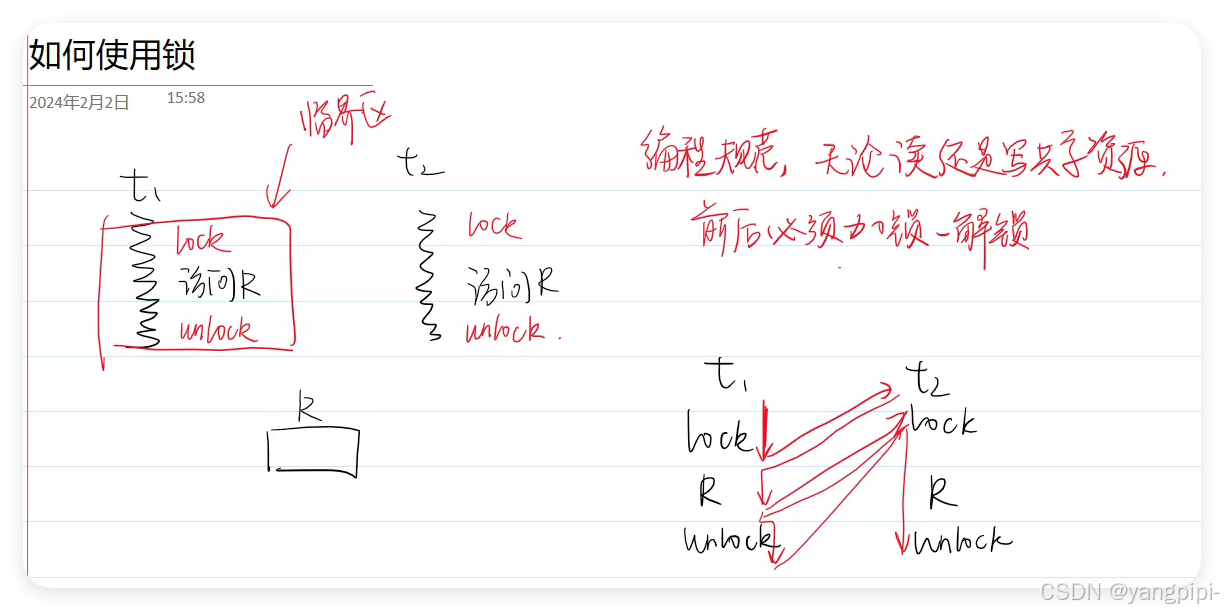 如何使用锁
2024年2月2日 15:58
临界区
t1
lock
访问R
unlock
t2
lock
访问R
unlock.
R
编程规范，无论读还是写共享资源.
前后必须加锁-解锁
t1
lock
R
unlock
t2
lock
R
unlock
CSDN @yangpipi-